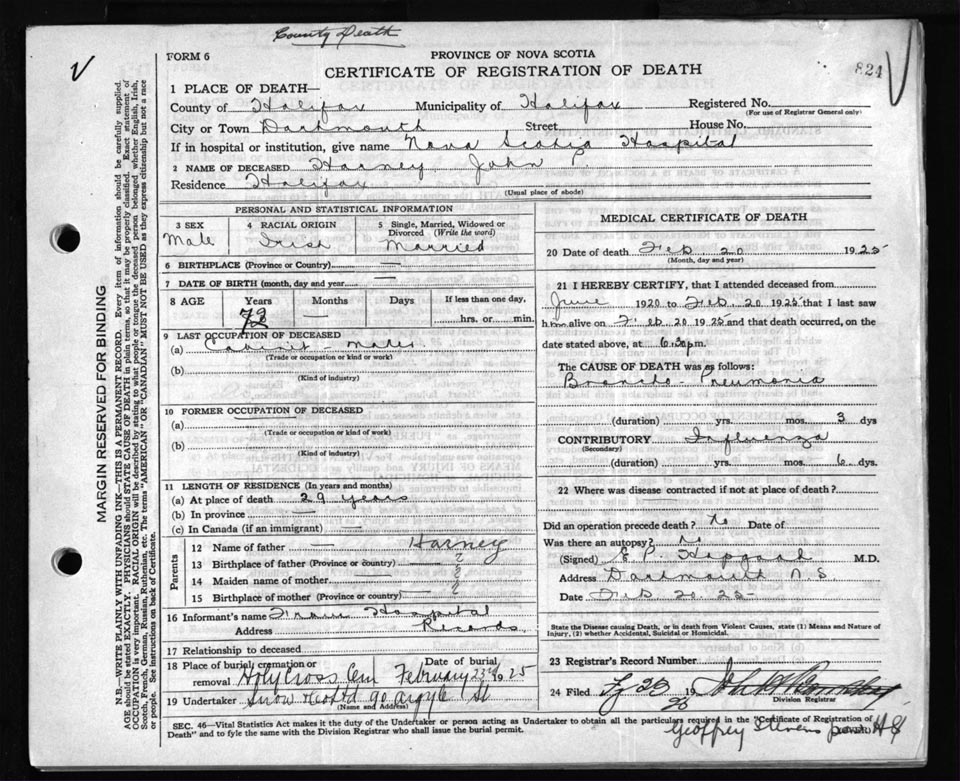 County Death
FORM 6
PROVINCE OF NOVA SCOTIA
824
CERTIFICATE OF REGISTRATION OF DEATH
1 PLACE OF DEATH—
County of Halifax Municipality of Halifax Registered No.
(For use of Registrar General only)
City or Town Dartmouth Street House No.
If in hospital or institution, give name Nova Scotia Hospital
2 NAME OF DECEASED Harney John P.
Residence Halifax
(Usual place of abode)
PERSONAL AND STATISTICAL INFORMATION
3 SEX Male
4 RACIAL ORIGIN Irish
5 Single, Married, Widowed or Divorced (Write the word) Married
6 BIRTHPLACE (Province or Country) —
7 DATE OF BIRTH (month, day and year) —
8 AGE Years Months Days If less than one day,
72 — hrs. or min.
9 LAST OCCUPATION OF DECEASED
(a) Cabinet - Maker
(Trade or occupation or kind or work)
(b)
(Kind of industry)
10 FORMER OCCUPATION OF DECEASED
(a)
(Trade or occupation or kind or work)
(b)
(Kind of industry)
11 LENGTH OF RESIDENCE (In years and months)
(a) At place of death 29 years
(b) In province —
(c) In Canada (if an immigrant) —
Parents
12 Name of father — Harney
13 Birthplace of father (Province or country) — ?
14 Maiden name of mother — ?
15 Birthplace of mother (Province or country) — ?
16 Informant's name From Hospital
Address Records
17 Relationship to deceased
18 Place of burial cremation or removal Holy Cross Cem Date of burial February 23rd 1925
19 Undertaker Snow & Co Ltd 90 Argyle St
(Name and Address)
MEDICAL CERTIFICATE OF DEATH
20 Date of death Feb 20 1925
(Month, day and year)
21 I HEREBY CERTIFY, that I attended deceased from
June 1920 to Feb. 20 1925 that I last saw
him alive on Feb 20 1925 and that death occurred, on the
date stated above, at 6.30 p.m.
The CAUSE OF DEATH was as follows:
Broncho-Pneumonia
(duration) yrs. mos. 3 dys
CONTRIBUTORY Influenza
(Secondary)
(duration) yrs. mos. 6 dys.
22 Where was disease contracted if not at place of death?
Did an operation precede death? No Date of
Was there an autopsy? No
(Signed) E P. Hopgood M.D.
Address Dartmouth N.S
Date Feb 20. 25
State the Disease causing Death, or in death from Violent Causes, state (1) Means and Nature of Injury, (2) whether Accidental, Suicidal or Homicidal.
23 Registrar's Record Number
24 Filed 23 19
Division Registrar
SEC. 46—Vital Statistics Act makes it the duty of the Undertaker or person acting as Undertaker to obtain all the particulars required in the "Certificate of Registration of
Death" and to fyle the same with the Division Registrar who shall issue the burial permit.
(OVER)
Geoffrey Stevens
MARGIN RESERVED FOR BINDING
N.B.—WRITE PLAINLY WITH UNFADING INK—THIS IS A PERMANENT RECORD. Every item of information should be carefully supplied.
AGE should be stated EXACTLY. PHYSICIANS should STATE CAUSE OF DEATH in plain terms, so that it may be properly classified. Exact statement of
OCCUPATION is very important. RACIAL ORIGIN will be described by stating to what people or tongue the deceased person belonged whether English, Irish,
Scotch, French, German, Russian, Ruthenian, etc. The terms "AMERICAN" OR "CANADIAN" MUST NOT BE USED as they express citizenship but not a race
or people. See instructions on back of Certificate.